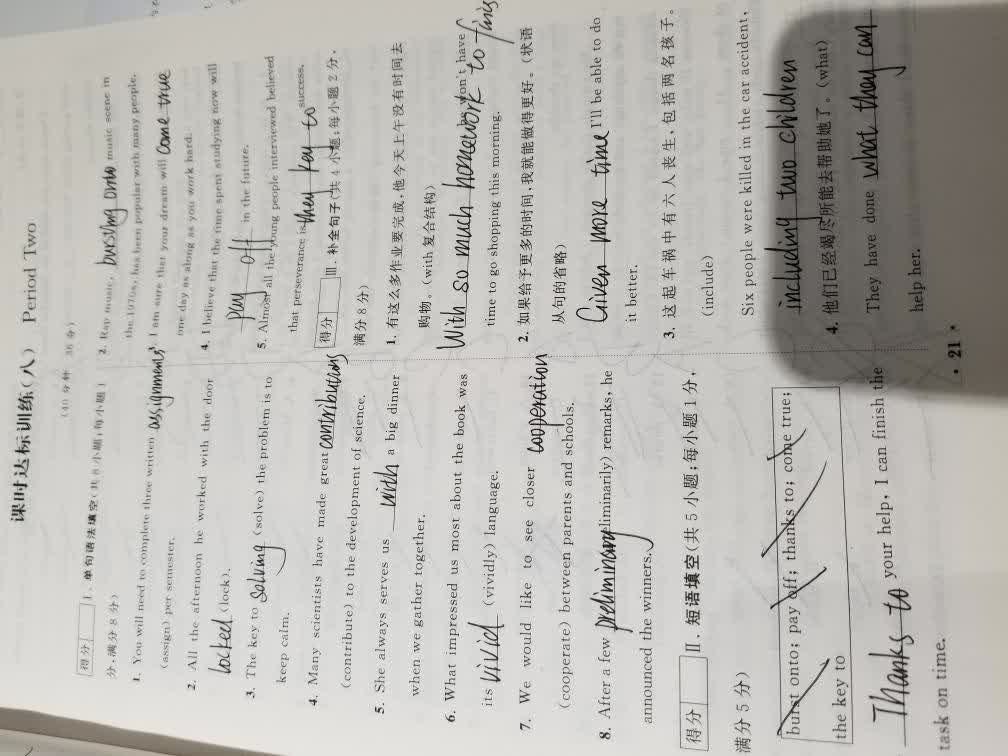 课时达标训练(八) Period Two
(40分钟 36分)
得分
Ⅰ. 单句语法填空(共8小题;每小题1
分,满分8分)
1. You will need to complete three written assignments
(assign) per semester.
2. All the afternoon he worked with the door
locked (lock).
3. The key to solving (solve) the problem is to
keep calm.
4. Many scientists have made great contributions
(contribute) to the development of science.
5. She always serves us with a big dinner
when we gather together.
6. What impressed us most about the book was
its vivid (vividly) language.
7. We would like to see closer cooperation
(cooperate) between parents and schools.
8. After a few preliminary (preliminarily) remarks, he
announced the winners.
得分
Ⅱ. 短语填空(共5小题;每小题1分,
满分5分)
burst onto; pay off; thanks to; come true;
the key to
Thanks to your help, I can finish the
task on time.
2. Rap music, bursting onto music scene in
the 1970s, has been popular with many people.
3. I am sure that your dream will come true
one day as along as you work hard.
4. I believe that the time spent studying now will
pay off in the future.
5. Almost all the young people interviewed believed
that perseverance is they key to success.
得分
Ⅲ. 补全句子(共4小题;每小题2分,
满分8分)
1. 有这么多作业要完成,他今天上午没有时间去
购物。(with复合结构)
With so much homework to finish won't have
time to go shopping this morning.
2. 如果给予更多的时间,我就能做得更好。(状语
从句的省略)
Given more time I'll be able to do
it better.
3. 这起车祸中有六人丧生,包括两名孩子。
(include)
Six people were killed in the car accident,
including two children
4. 他们已经竭尽所能去帮助她了。(what)
They have done what they can
help her.
· 21 ·